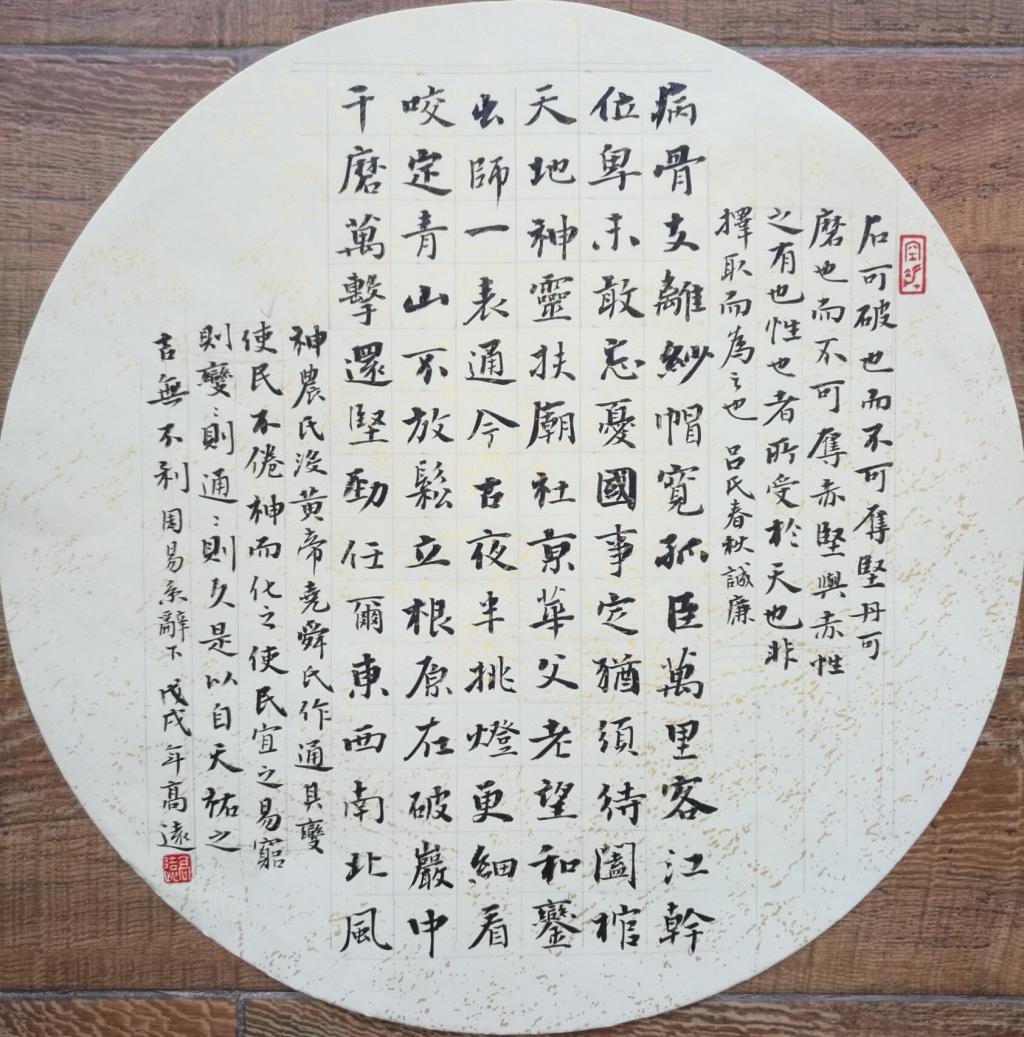 石可破也而不可奪堅丹可
磨也而不可奪赤堅與赤性
之有也性也者所受於天也非
擇取而為之也 呂氏春秋誠廉
病骨支離紗帽寬孤臣萬里客江幹
位卑未敢忘憂國事定猶須待闔棺
天地神靈扶廟社京華父老望和鑾
出師一表通今古夜半挑燈更細看
咬定青山不放鬆立根原在破巖中
千磨萬擊還堅勁任爾東西南北風
神農氏沒黃帝堯舜氏作通其變
使民不倦神而化之使民宜之易窮
則變：則通：則久是以自天祐之
吉無不利 周易系辭下 戊戌年高遠